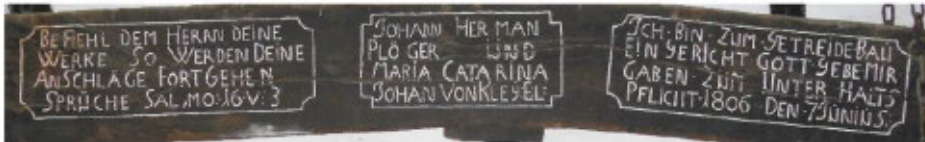 BEFIEHL DEM HERRN DEINE
WERKE SO WERDEN DEINE
ANSCHLÄGE FORTGEHEN
SPRÜCHE SAL,MO:16·V:3
JOHANN HERMAN
PLÖGER UND
MARIA CATARINA
JOHAN VON KLEYEL:
ICH·BIN·ZUM GETREIDE BAU
EIN GERICHT GOTT GEBE MIR
GABEN·ZUM UNTER HALTS
PFLICHT·1806 DEN 7 JUNIUS: